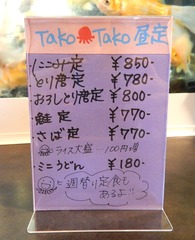 Tako Tako 昼定
ミニみそ定 ¥850-
とり唐定 ¥780-
おろしとり唐定 ¥800-
鮭定 ¥770-
さば定 ¥770-
ライス大盛 100円増
ミニうどん ¥180-
週替り定食も
あるよ!!